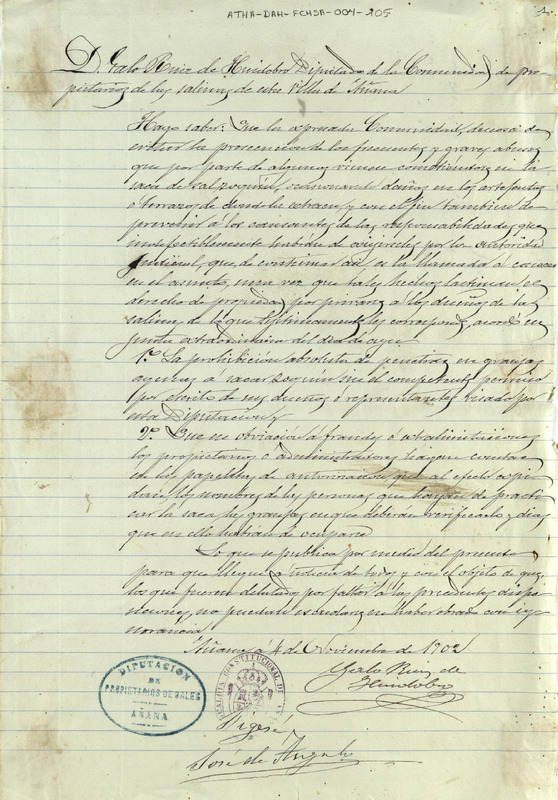 ATHA-DAH-FCHSA-004-205
D. Galo Ruiz de Huidobro Diputado de la Comunidad de pro-
pietarios de las salinas de esta villa de Añana
Hago saber: Que la expresada Comunidad, deseosa de
evitar la prosecucion de los frecuentes y graves abusos
que por parte de algunos vienen cometiendose en la
saca de sal, ocasionando daños en los artefactos
ó terrazos de donde la extraen, y con el fin tambien de
prevenir á los causantes de las responsabilidades que
indefectiblemente habrán de exigirseles por la autoridad
Judicial, que de continuar asi, es la llamada á conocer
en el asunto, una vez que tales hechos lastiman el
derecho de propiedad, por privarse a los dueños de las
salinas de lo que legitimamente les corresponde, acordó en
junta extraordinaria del dia de ayer
1º. La prohibicion absoluta de penetrar en granjas
agenas á sacar sin el competente permiso
por escrito de sus dueños ó representantes visado por
esta Diputacion y
2º. Que en obviacion de fraudes ó extralimitaciones
los propietarios ó administradores hagan constar
en las papeletas de autorizacion que al efecto expi-
dieren, los nombres de las personas que hayan de practi-
car la saca, las granjas en que deberán verificarlo y dias
que en ello habrán de ocuparse
Lo que se publica por medio del presente
para que llegue á noticia de todos y con el objeto de que,
los que fueren delatados por faltar á las precedentes dispo-
siciones, no puedan escudarse en haber obrado con ig-
norancia.
Añana á 4 de Noviembre de 1902
Galo Ruiz de
Huidobro
DIPUTACION
DE
PROPIETARIOS DE SALES
AÑANA
CONSTITUCIONAL DE
Fijese
José de Angulo